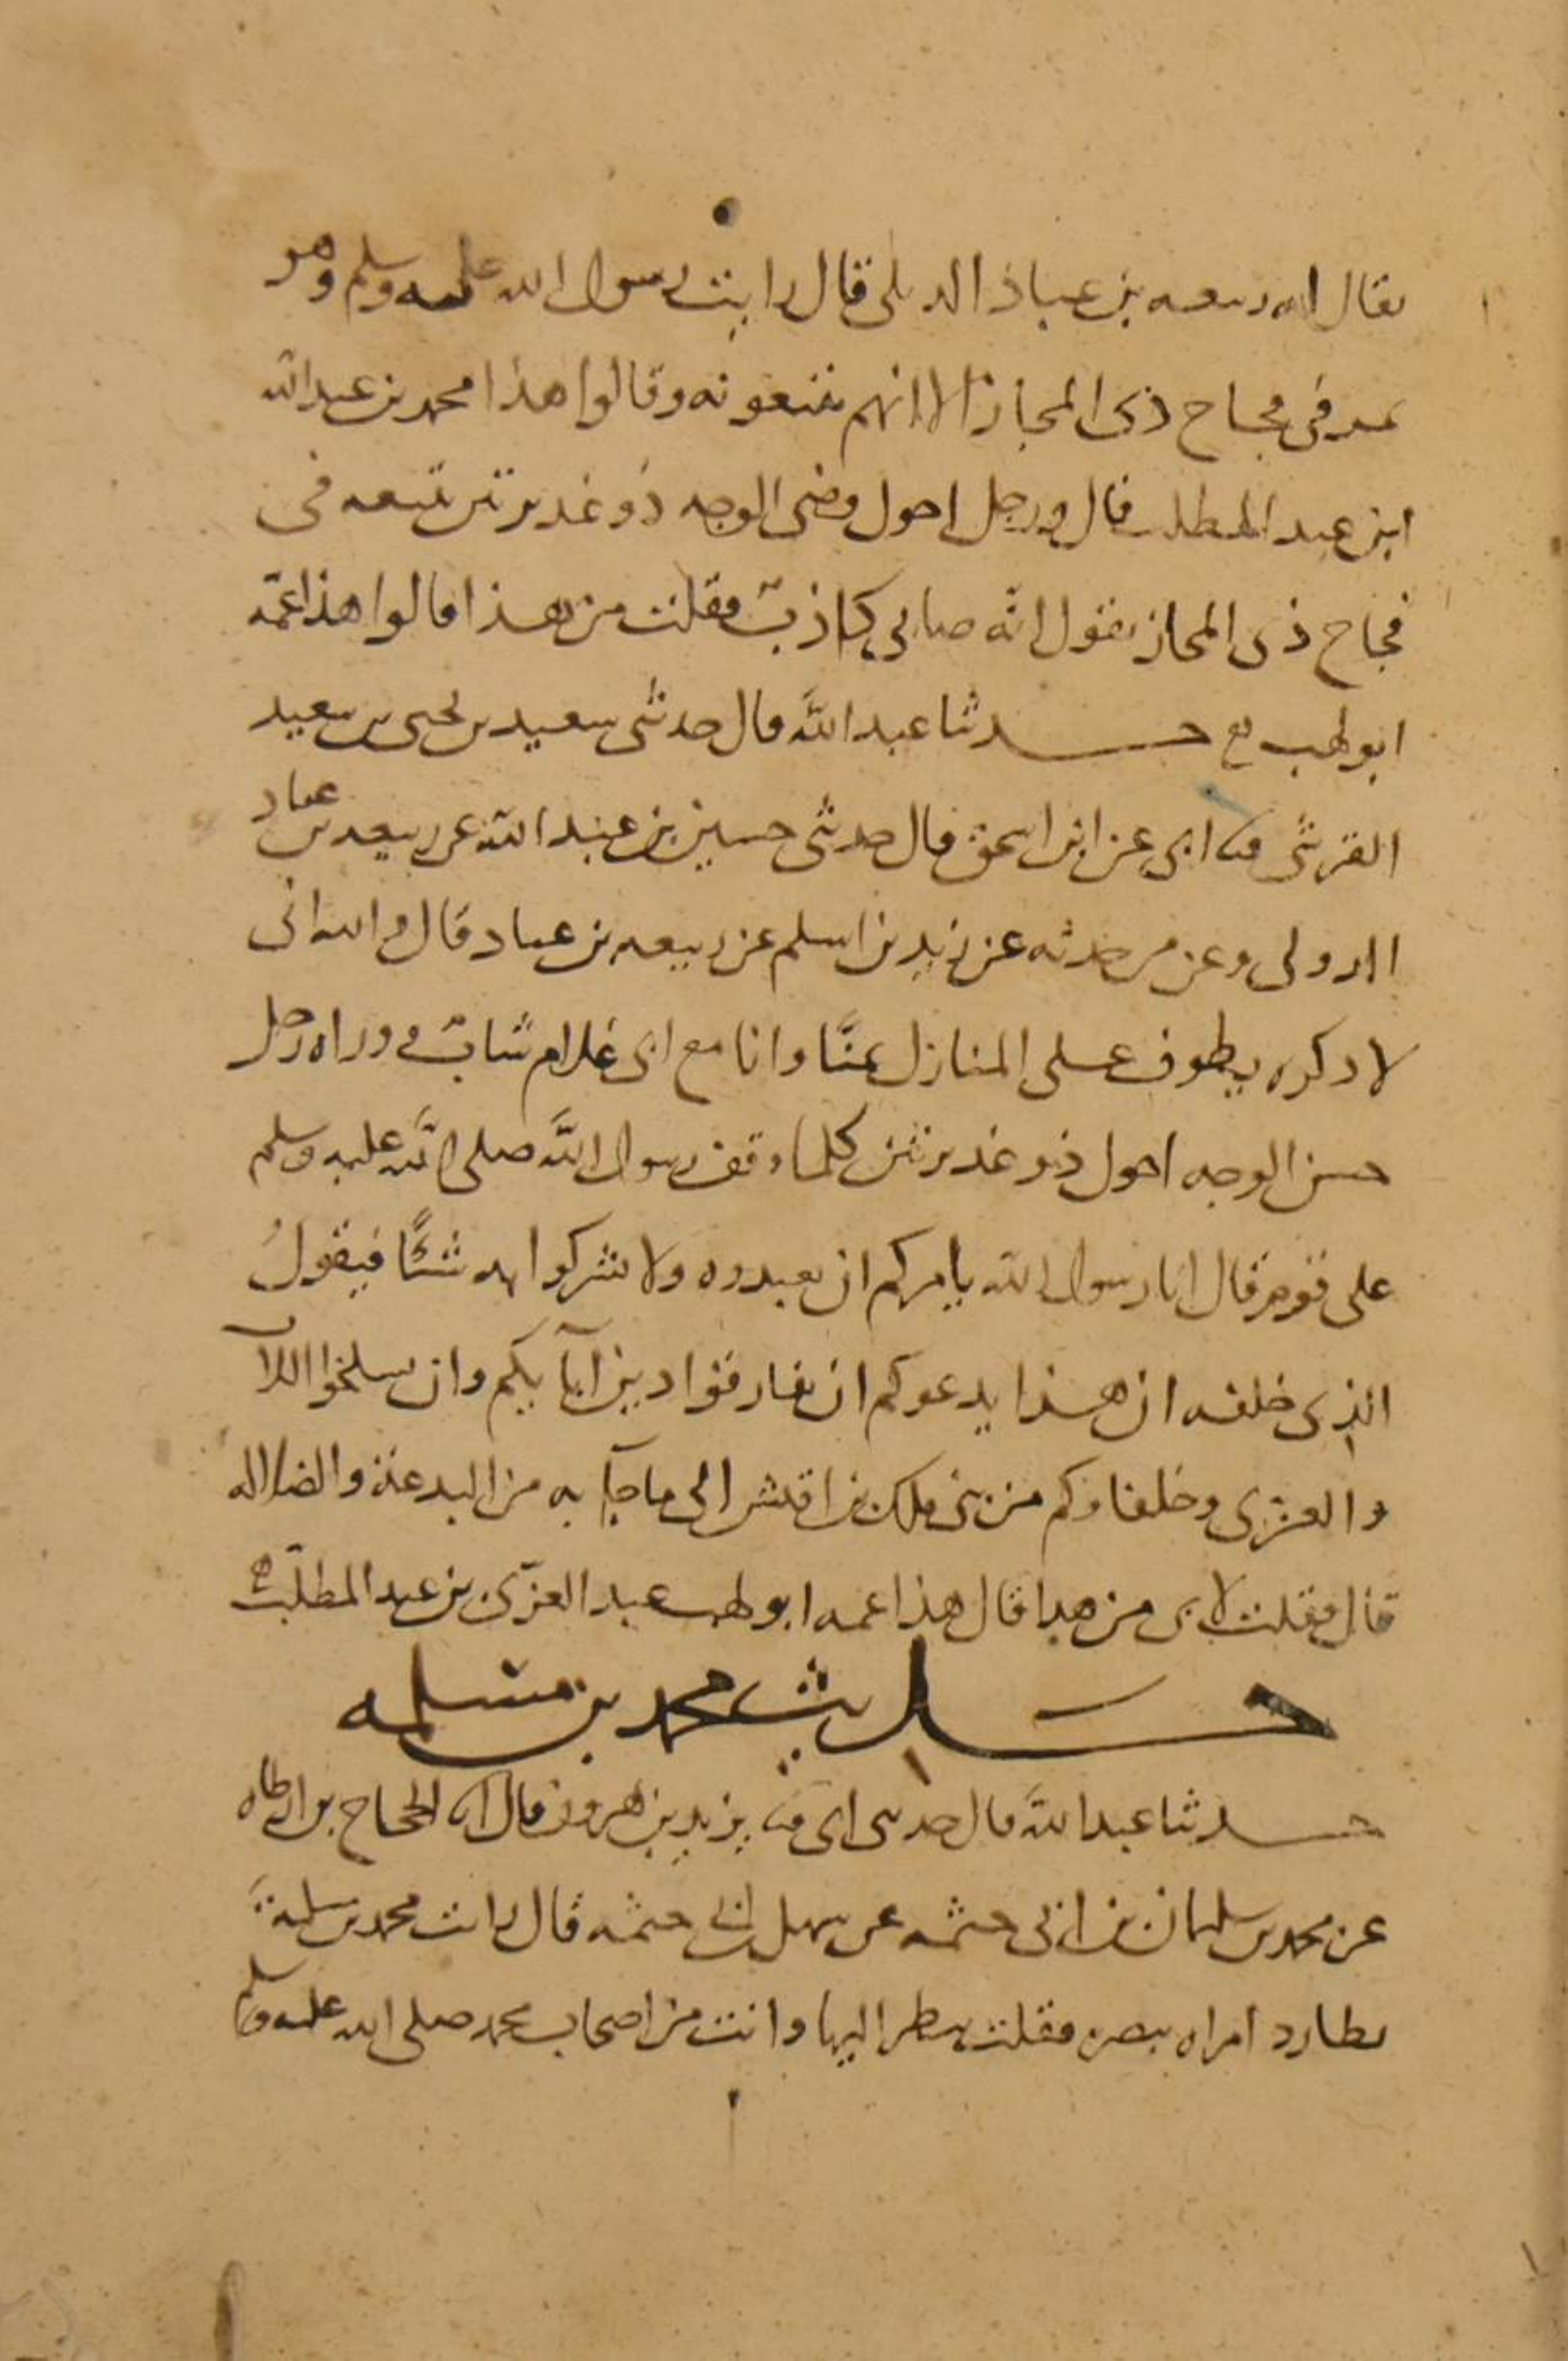 يقال له ربيعه بن عباد الديلى قال رايت رسول الله عليه وسلم وهو
يمر فى فجاج ذى المجاز الا انهم يتبعونه وقالوا هذا محمد بن عبد الله
ابن عبد المطلب قال ورجل احول وضى الوجه ذو غديرتين يتبعه فى
فجاج ذى المجاز يقول انه صابى كاذب فقلت من هذا قالوا هذا عمه
ابو لهب حدثنا عبد الله قال حدثنى سعيد بن يحيى بن سعيد
القرشى ثنا ابى عن ابن اسحق قال حدثنى حسين بن عبد الله عن ربيعه بن عباد
الدولى وعن من حدثه عن زيد بن اسلم عن ربيعه بن عباد قال والله انى
لاذكره يطوف على المنازل بمنا وانا مع ابى غلام شاب ووراه رجل
حسن الوجه احول ذو غديرتين كلما وقف رسول الله صلى الله عليه وسلم
على قوم قال انا رسول الله يامركم ان تعبدوه ولا تشركوا به شيئا فيقول
الذى خلفه ان هذا يدعوكم ان تفارقوا دين آبآيكم وان تسلخوا اللات
والعزى وحلفاوكم من بنى ملك بن اقيش الى ما جآ به من البدعة والضلاله
قال فقلت لابى من هذا قال هذا عمه ابو لهب عبد العزى بن عبد المطلب
حديث محمد بن مسلمه
حدثنا عبد الله قال حدثنى ابى ثنا يزيد بن هرون قال انا الحجاج بن ارطاه
عن محمد بن سليمان بن ابى حثمه عن سهل بن ابى حثمه قال رايت محمد بن مسلمة
يطارد امراه ببصره فقلت تنظر اليها وانت من اصحاب محمد صلى الله عليه وسلم